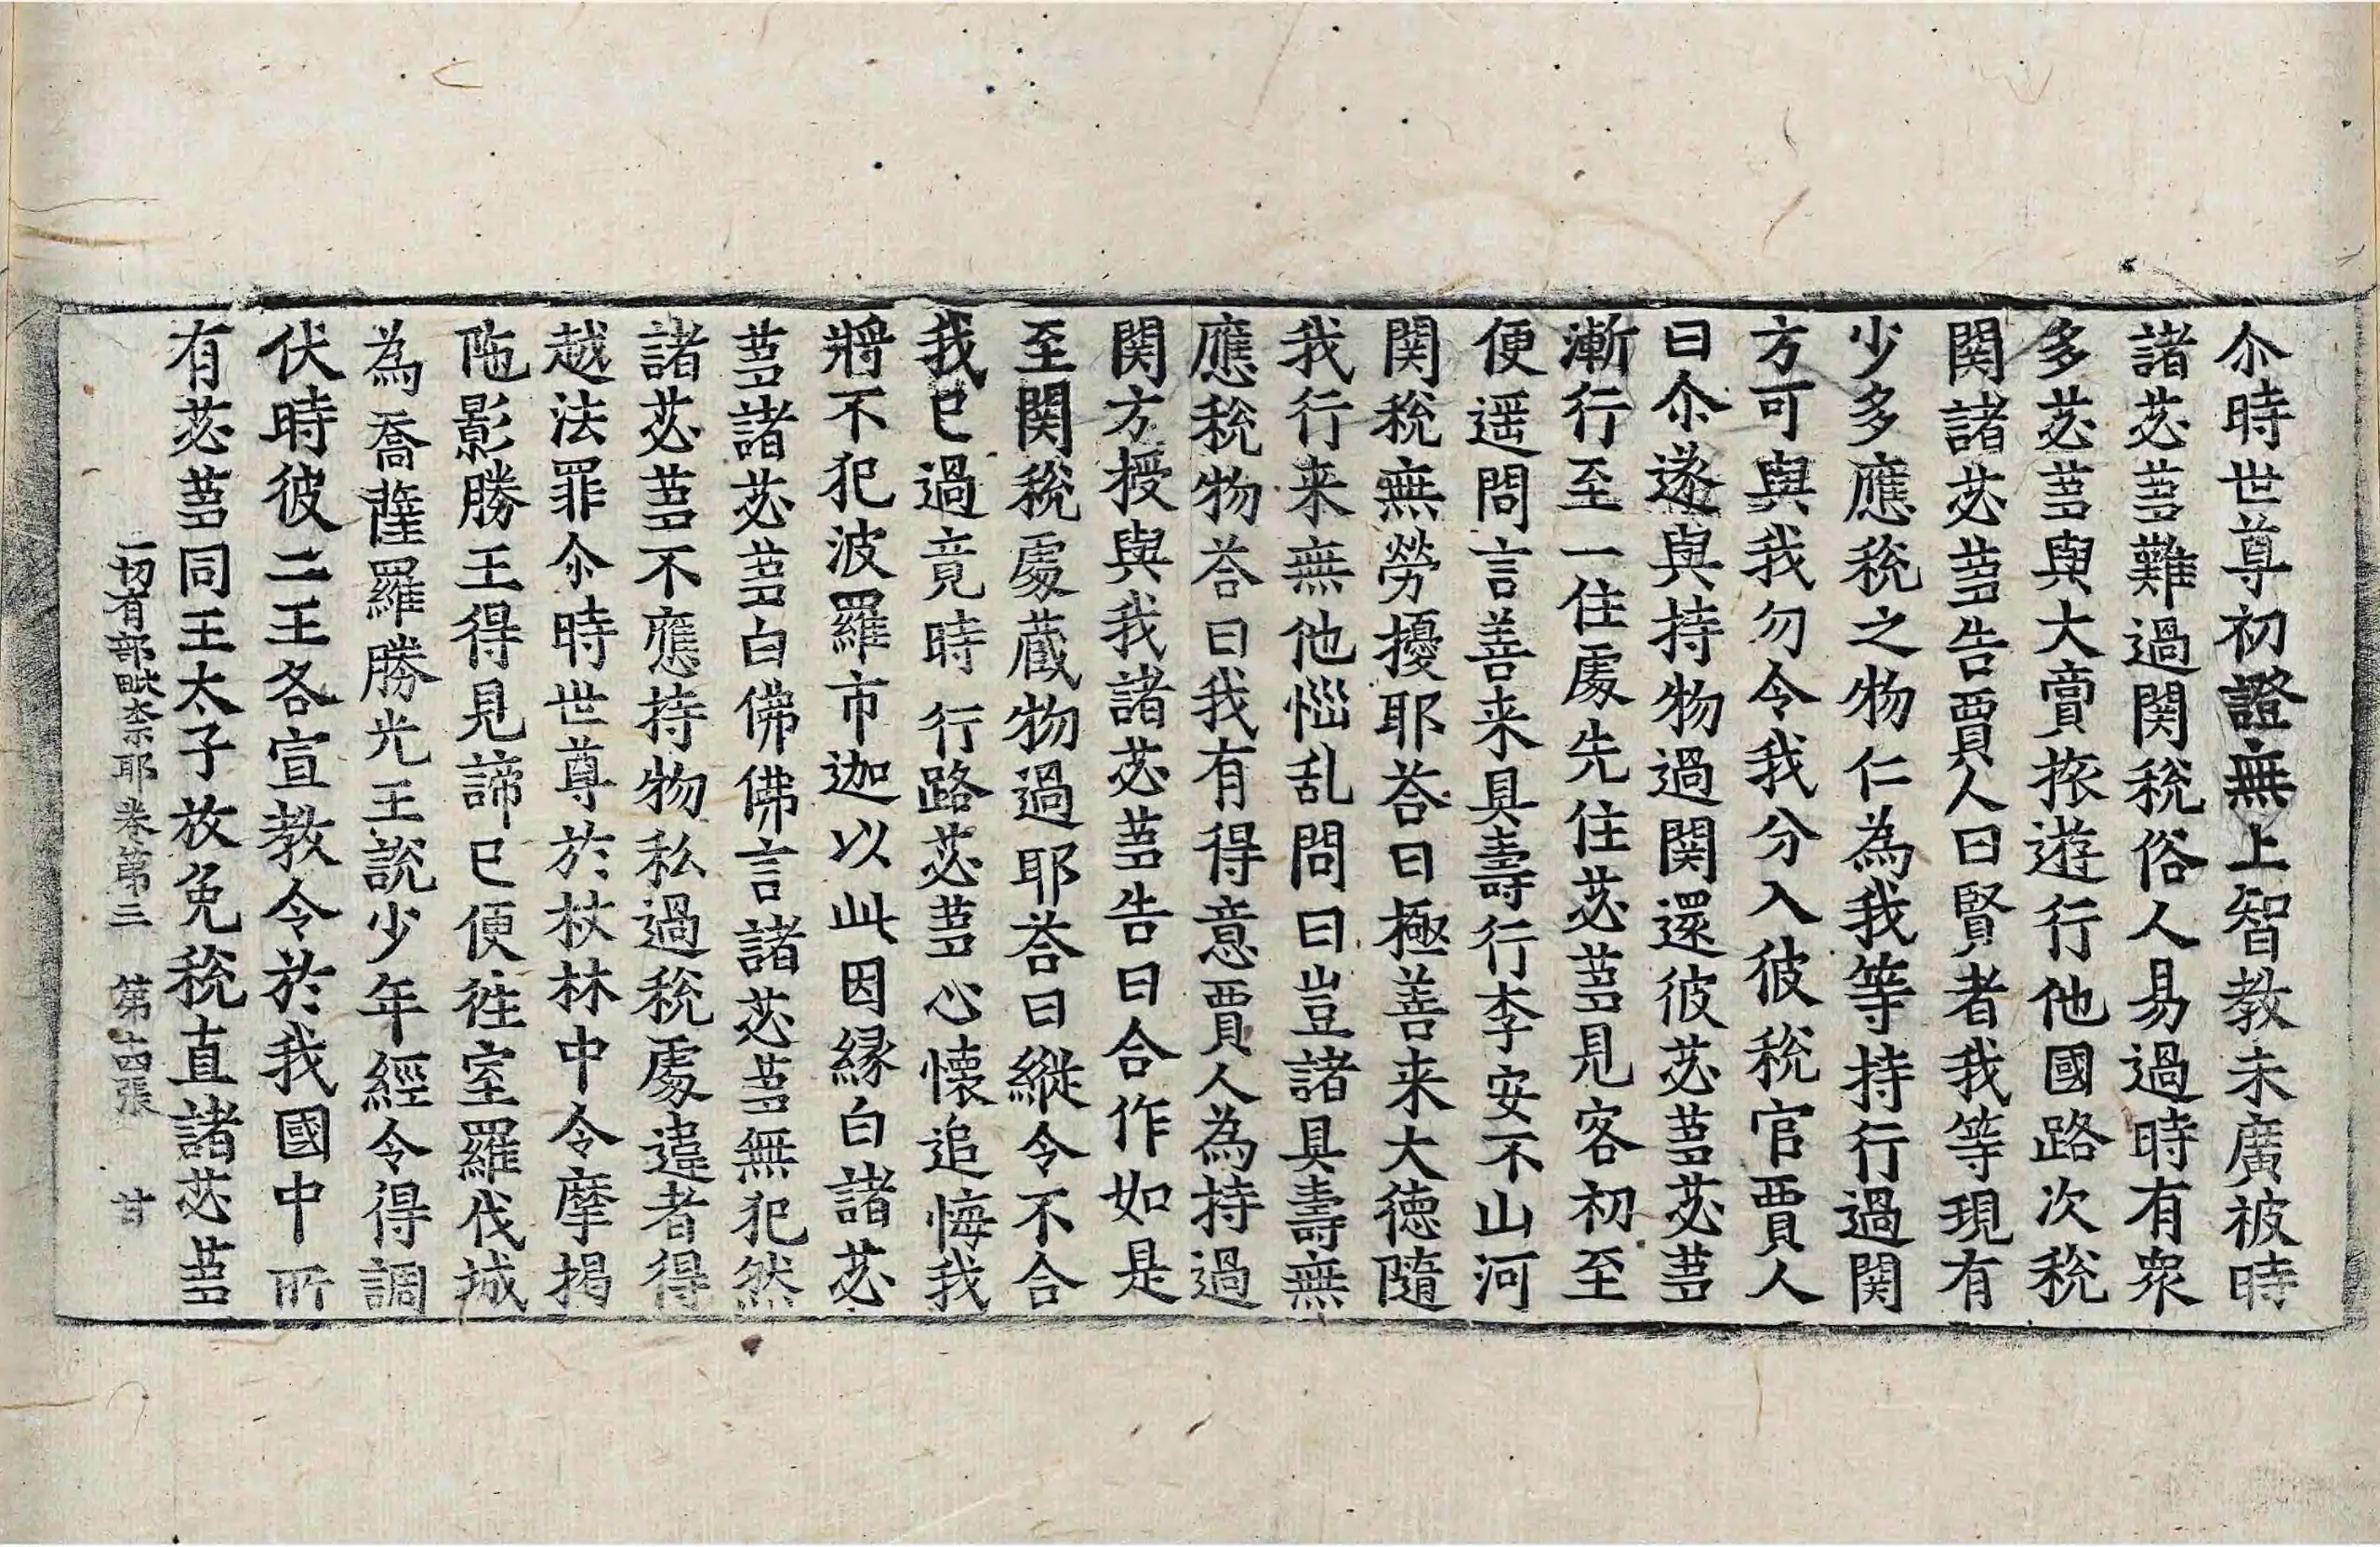 尒時世尊初證無上智教未廣被時
諸苾蒭難過関稅俗人易過時有衆
多苾蒭與大賣旅遊行他國路次稅
関諸苾蒭告賈人曰賢者我等現有
少多應稅之物仁為我等持行過関
方可與我勿令我分入彼稅官賈人
曰尒遂與持物過関還彼苾蒭苾蒭
漸行至一住處先住苾蒭見客初至
便遥問言善来具壽行李安不山河
関稅無勞擾耶荅曰極善来大德隨
我行来無他惱乱問曰豈諸具壽無
應稅物荅曰我有得意賈人為持過
関方授與我諸苾蒭告曰合作如是
至関稅處蔵物過耶荅曰縱令不合
我已過竟時行路苾蒭心懐追悔我
將不犯波羅市迦以此因縁白諸苾
蒭諸苾蒭白佛佛言諸苾蒭無犯然
諸苾蒭不應持物私過稅處違者得
越法罪尒時世尊於杖林中令摩揭
陁影勝王得見諦已便徃室羅伐城
為喬薩羅勝光王說少年經令得調
伏時彼二王各宣教令於我國中所
有苾蒭同王太子放免稅直諸苾蒭
一切有部毗奈耶卷第三 第十四張 甘